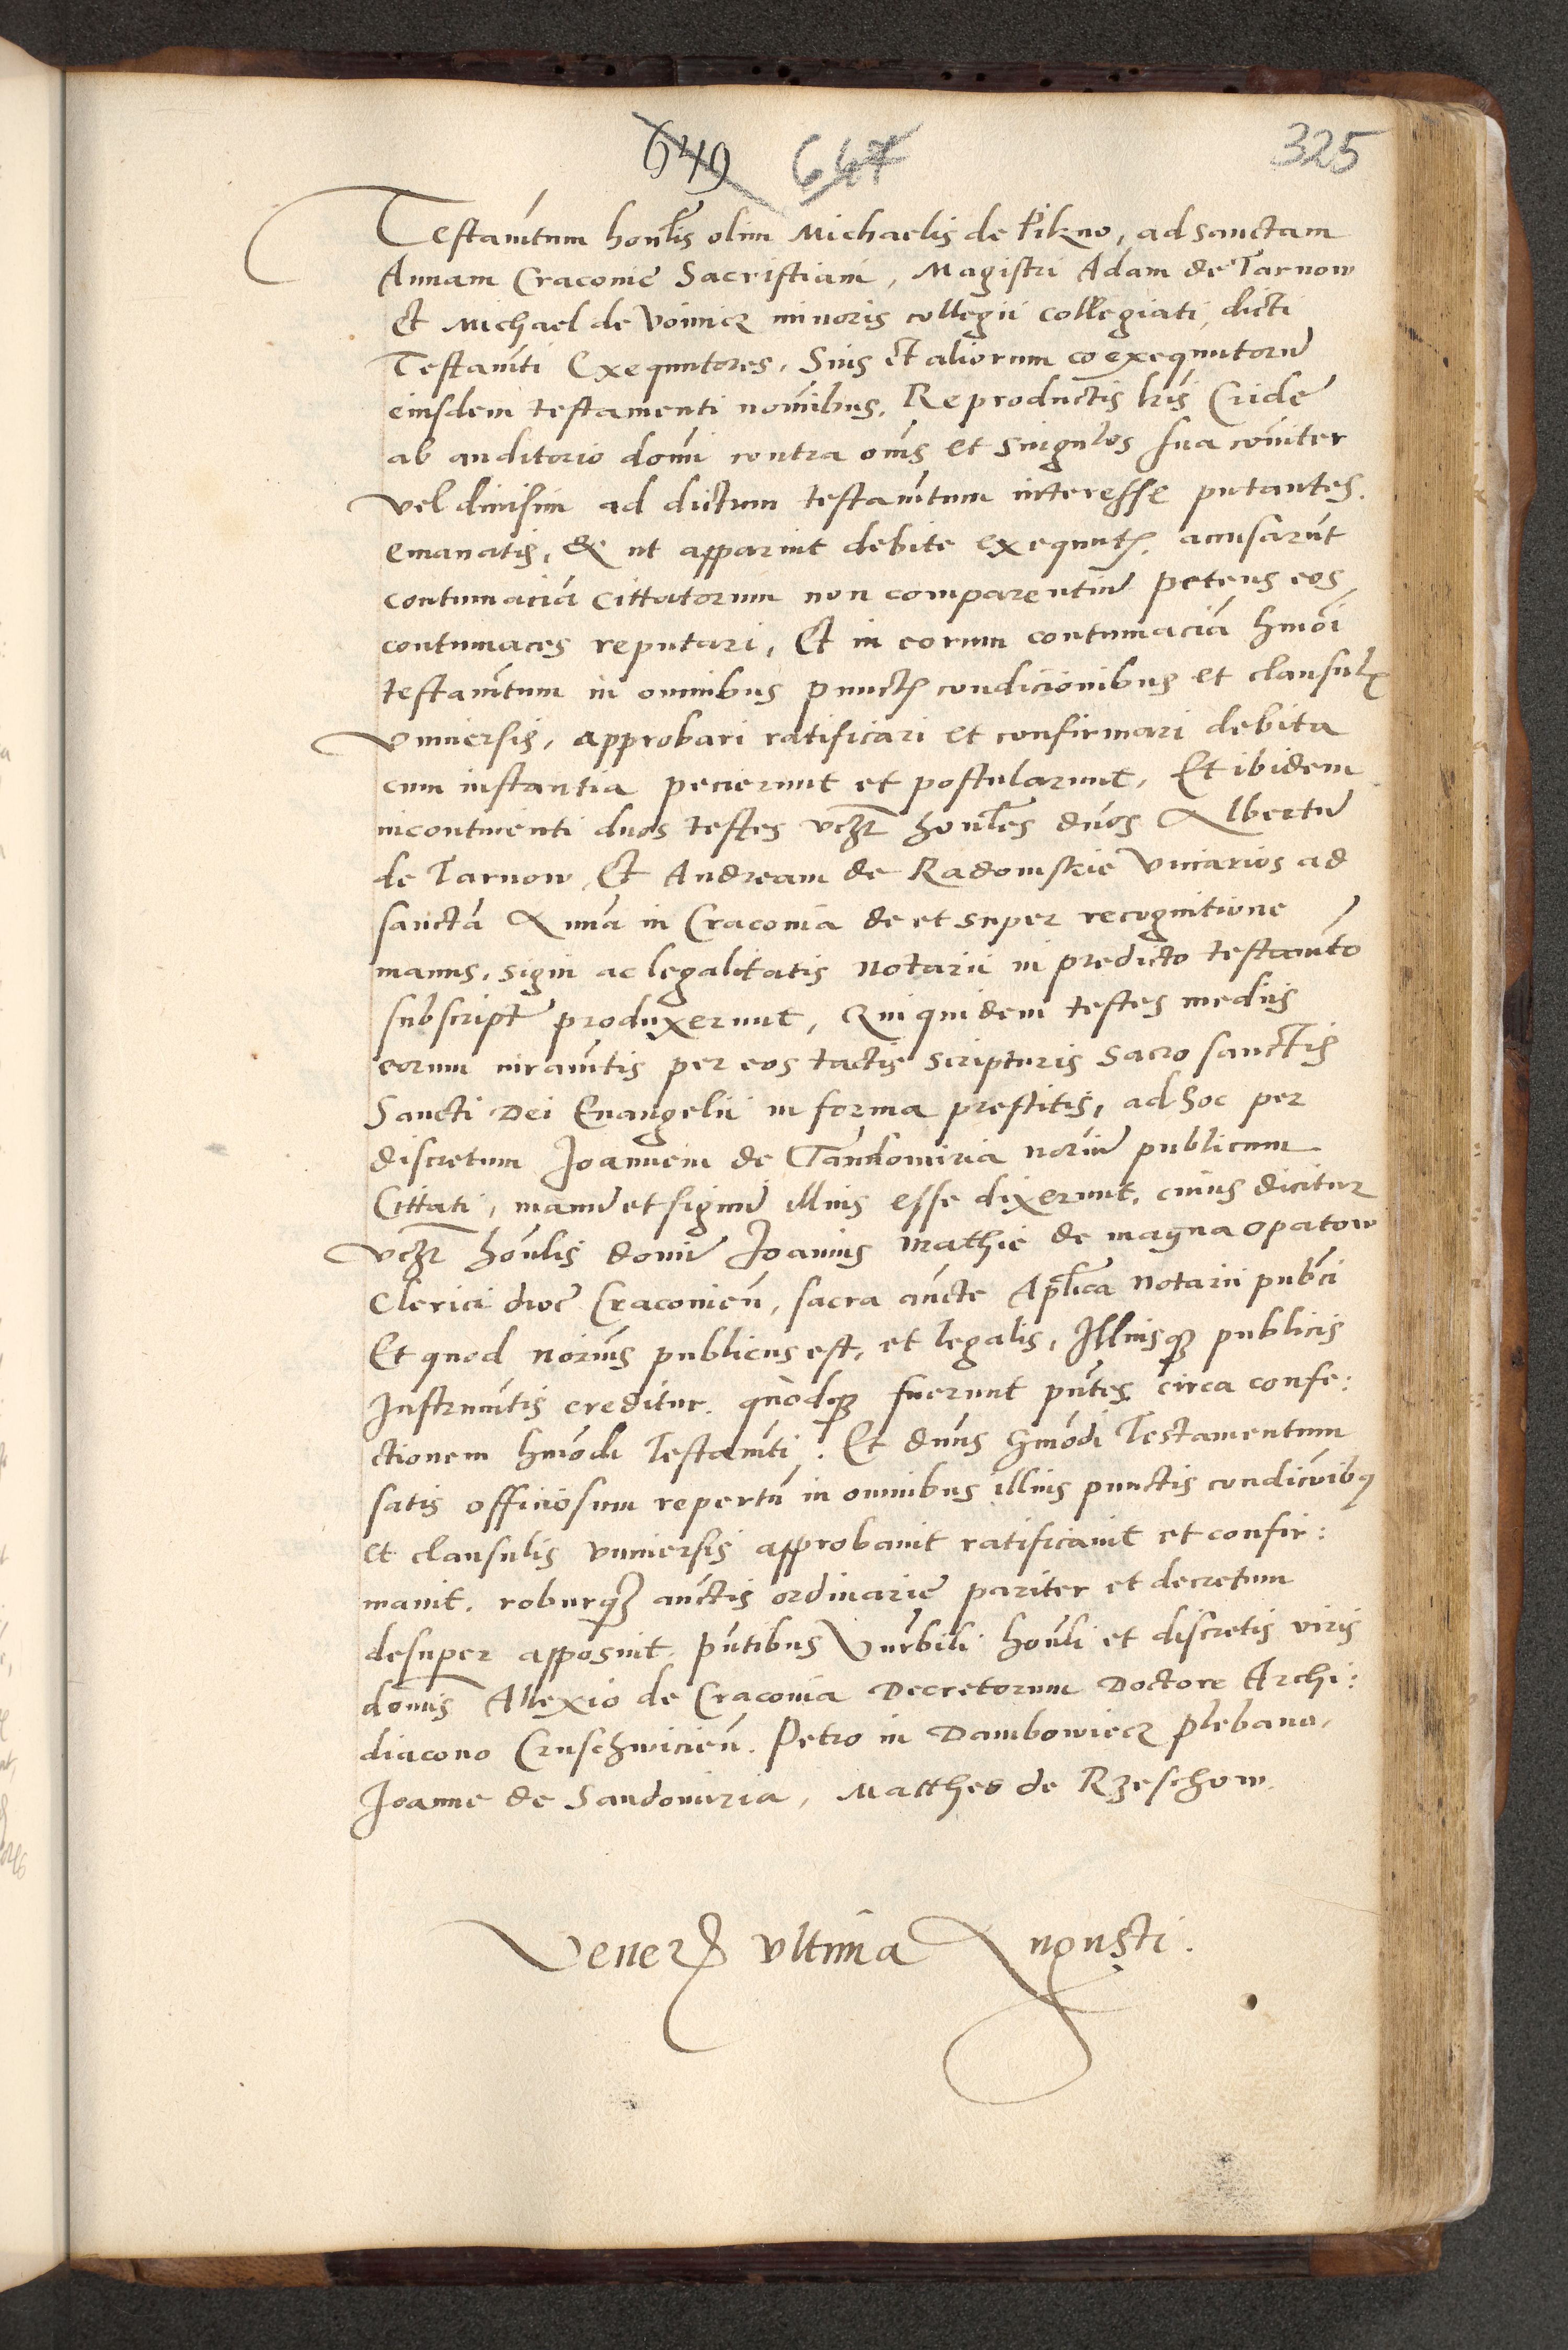 649 647 325
Testamẽtum honlis olim Michaelis de Pikno, ad sanctam
Annam Cracovie Sacristiani, Magistri Adam de Tarnow
Et Michael de Voinicz minoris collegii collegiati, dicti
Testamẽti Exequutores, Suis et aliorum coexequutorũ
eiusdem testamenti nomĩbus, Reproductis lrĩs Cride
ab auditorio domĩ contra omẽs et singulos sua comĩter
vel divisim ad dictum testamẽtum interesse putantes.
emanatis, & ut apparuit debite exequut(is), accusarũt
contumaciã cittatorum non comparentiũ petens eos
contumaces reputari, Et in eorum contumaciã hmõi
testamẽtum in omnibus punct(is) condicionibus et clausul(is)
Universis, approbari ratificari et confirmari debita
cum instantia pecierunt et postularunt, Et ibidem
incontinenti duos testes vcz honles dños Albertũ
de Tarnow, Et Andream de Radomskie Vicarios ad
sanctã Annã in Cracovia de et super recognitione
manus, signi ac legalitatis Notarii in predicto testamẽto
subscripti produxerunt, Qui quidem testes mediis
eorum iuramẽtis per eos tactis scripturis sacro sanctis
Sancti Dei Evangelii in forma prestitis, ad hoc per
discretum Joannem de Sandomiria norũ publicum
Cittati, manũ et signũ illius esse dixerunt, cuius dicitur
vcz honlis domĩ Joannis Mathie de magna Opatow
Clerici dioc Cracovien̄, sacra aucte Aplica Notarii publci
Et quod noriũs publicus est, et legalis, Illiusq(ue) publicis
Instrumẽtis creditur. quodq(ue) fuerunt pñtes circa confe:
ctionem hmõdi Testamẽti. Et dñus hmõdi Testamentum
satis officiosum repertũ in omnibus illius punctis condicõibus
et clausulis universis approbavit ratificavit et confir:
mavit. roburq(ue) auctis ordinarie pariter et decretum
desuper apposuit. pñtibus Vnrbili honli et discretis viris
domĩs Allexio de Cracovia Decretorum Doctore Archi:
diacono Cruschwicien̄. Petro in Dambowiecz plebano,
Joanne de Sandomiria, Mattheo de Rzeschow.
Vener(is) ultima Augusti.